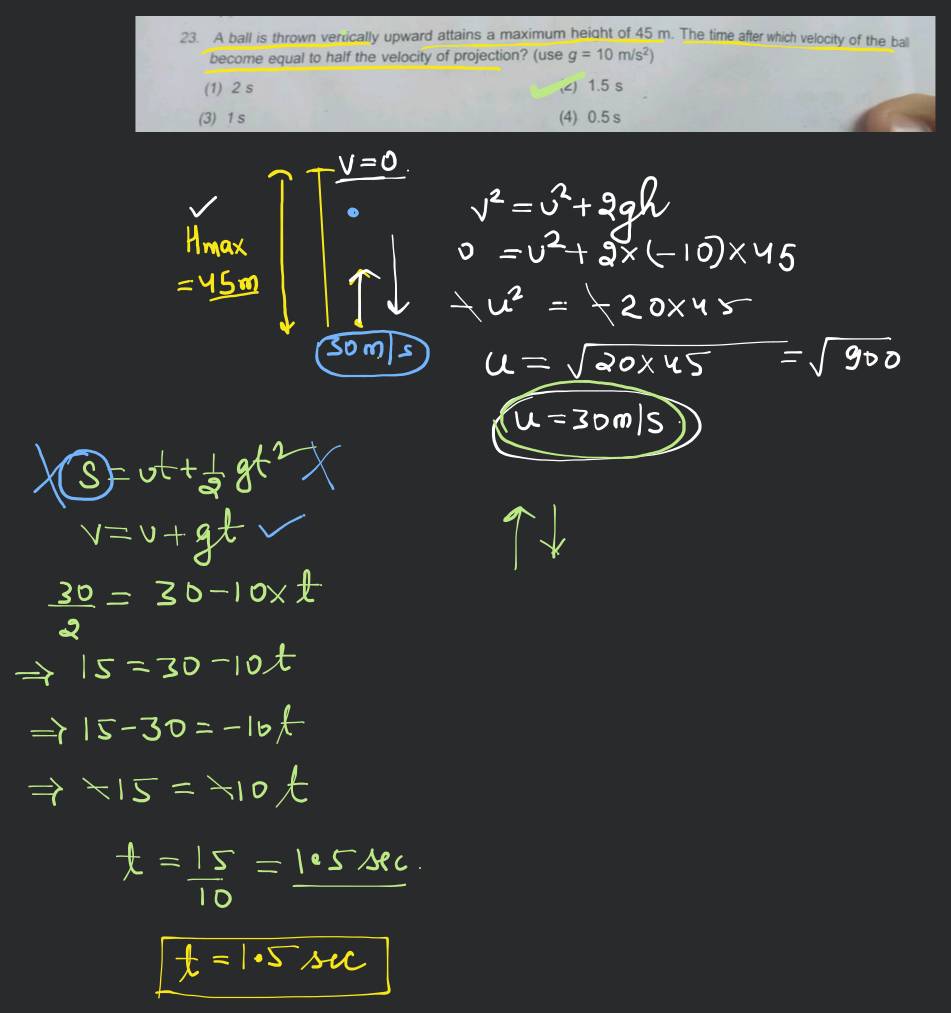 23. A ball is thrown vertically upward attains a maximum height of 45 m. The time after which velocity of the ball
become equal to half the velocity of projection? (use g = 10 m/s²)
(1) 2 s
(2) 1.5 s
(3) 1 s
(4) 0.5 s
V=0.
✓
Hmax
=45m
30m/s
v² = u² + 2gh
0 = u² + 2×(-10)×45
-u² = -20×45
u = √20×45 = √900
u = 30m/s
S = ut + 1/2 gt²
v = u + gt ✓
30/2 = 30-10×t
⇒ 15 = 30-10t
⇒ 15-30 = -10t
⇒ -15 = -10t
t = 15/10 = 1.5 sec.
t = 1.5 sec